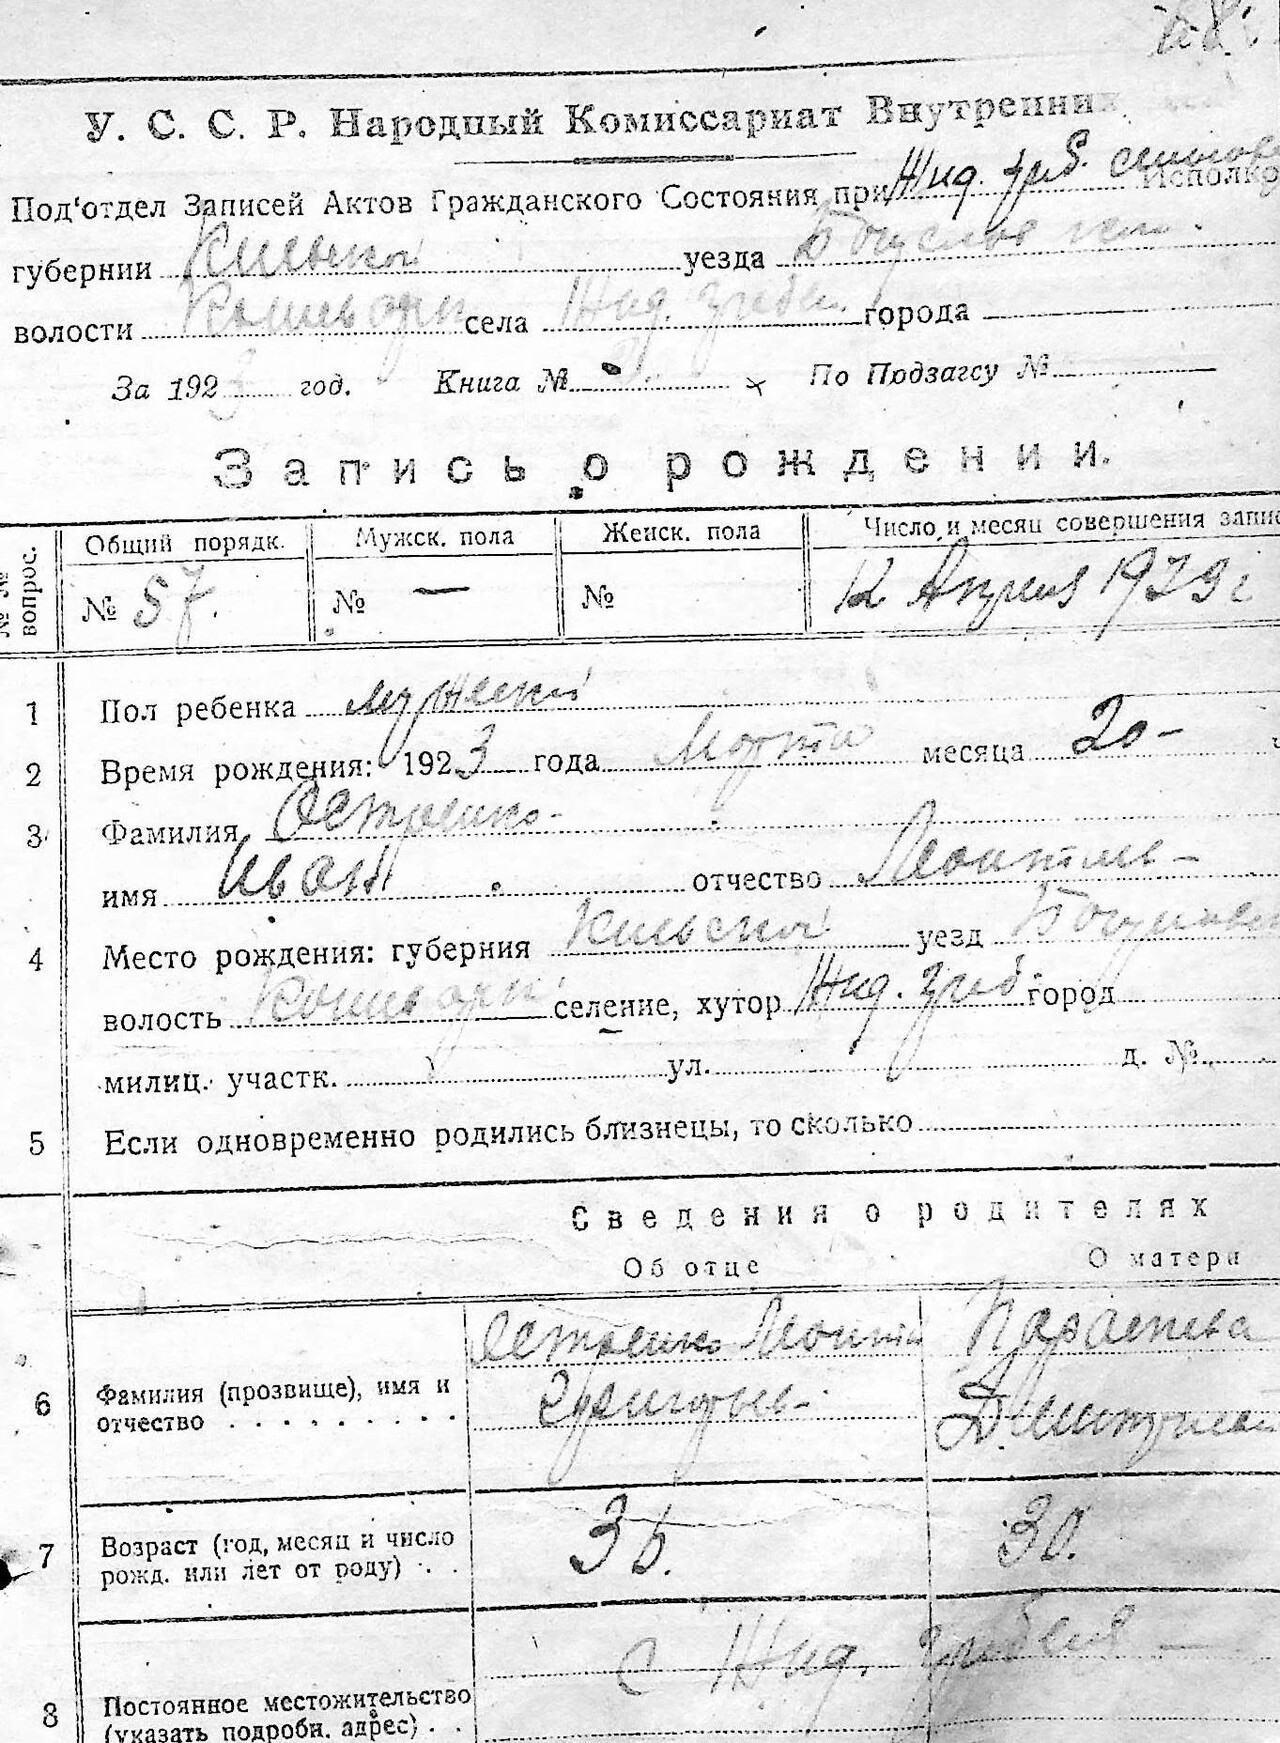 У. С. С. Р. Народный Комиссариат Внутренних
Под'отдел Записей Актов Гражданского Состояния при Жид. греб. Исполко
губернии уезда
волости села Жид. гребен. города
За 1923 год. Книга № По Подзагсу №
Запись о рождении.
№№ вопрос. Общий порядк. Мужск. пола Женск. пола Число и месяц совершения запис
№ 57. № — № 12 Апреля 1923 г
1 Пол ребенка мужской
2 Время рождения: 1923 года Марта месяца 20 -
3 Фамилия
имя Иван отчество
4 Место рождения: губерния Киевской уезд
волость селение, хутор Жид. греб. город
милиц. участк. ул. д. №
5 Если одновременно родились близнецы, то сколько
Сведения о родителях
Об отце О матери
6 Фамилия (прозвище), имя и отчество Григорьев. Параскева
7 Возраст (год, месяц и число рожд. или лет от роду) 30.
8 Постоянное местожительство (указать подробн. адрес) с Жид. Гребеня —